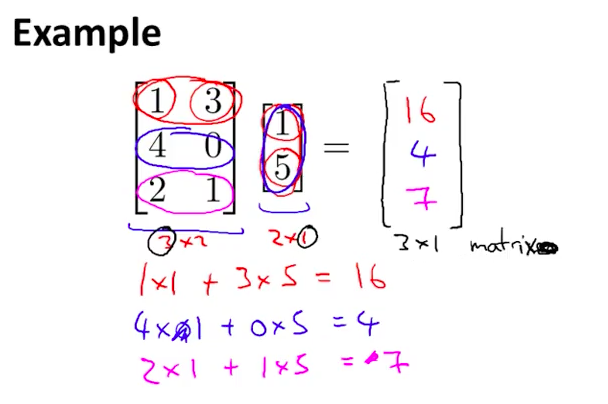 Example
1 3 1 = 16
4 0 5 4
2 1 7
3 × 2 2 × 1 3 × 1 matrix
1 × 1 + 3 × 5 = 16
4 × 1 + 0 × 5 = 4
2 × 1 + 1 × 5 = 7